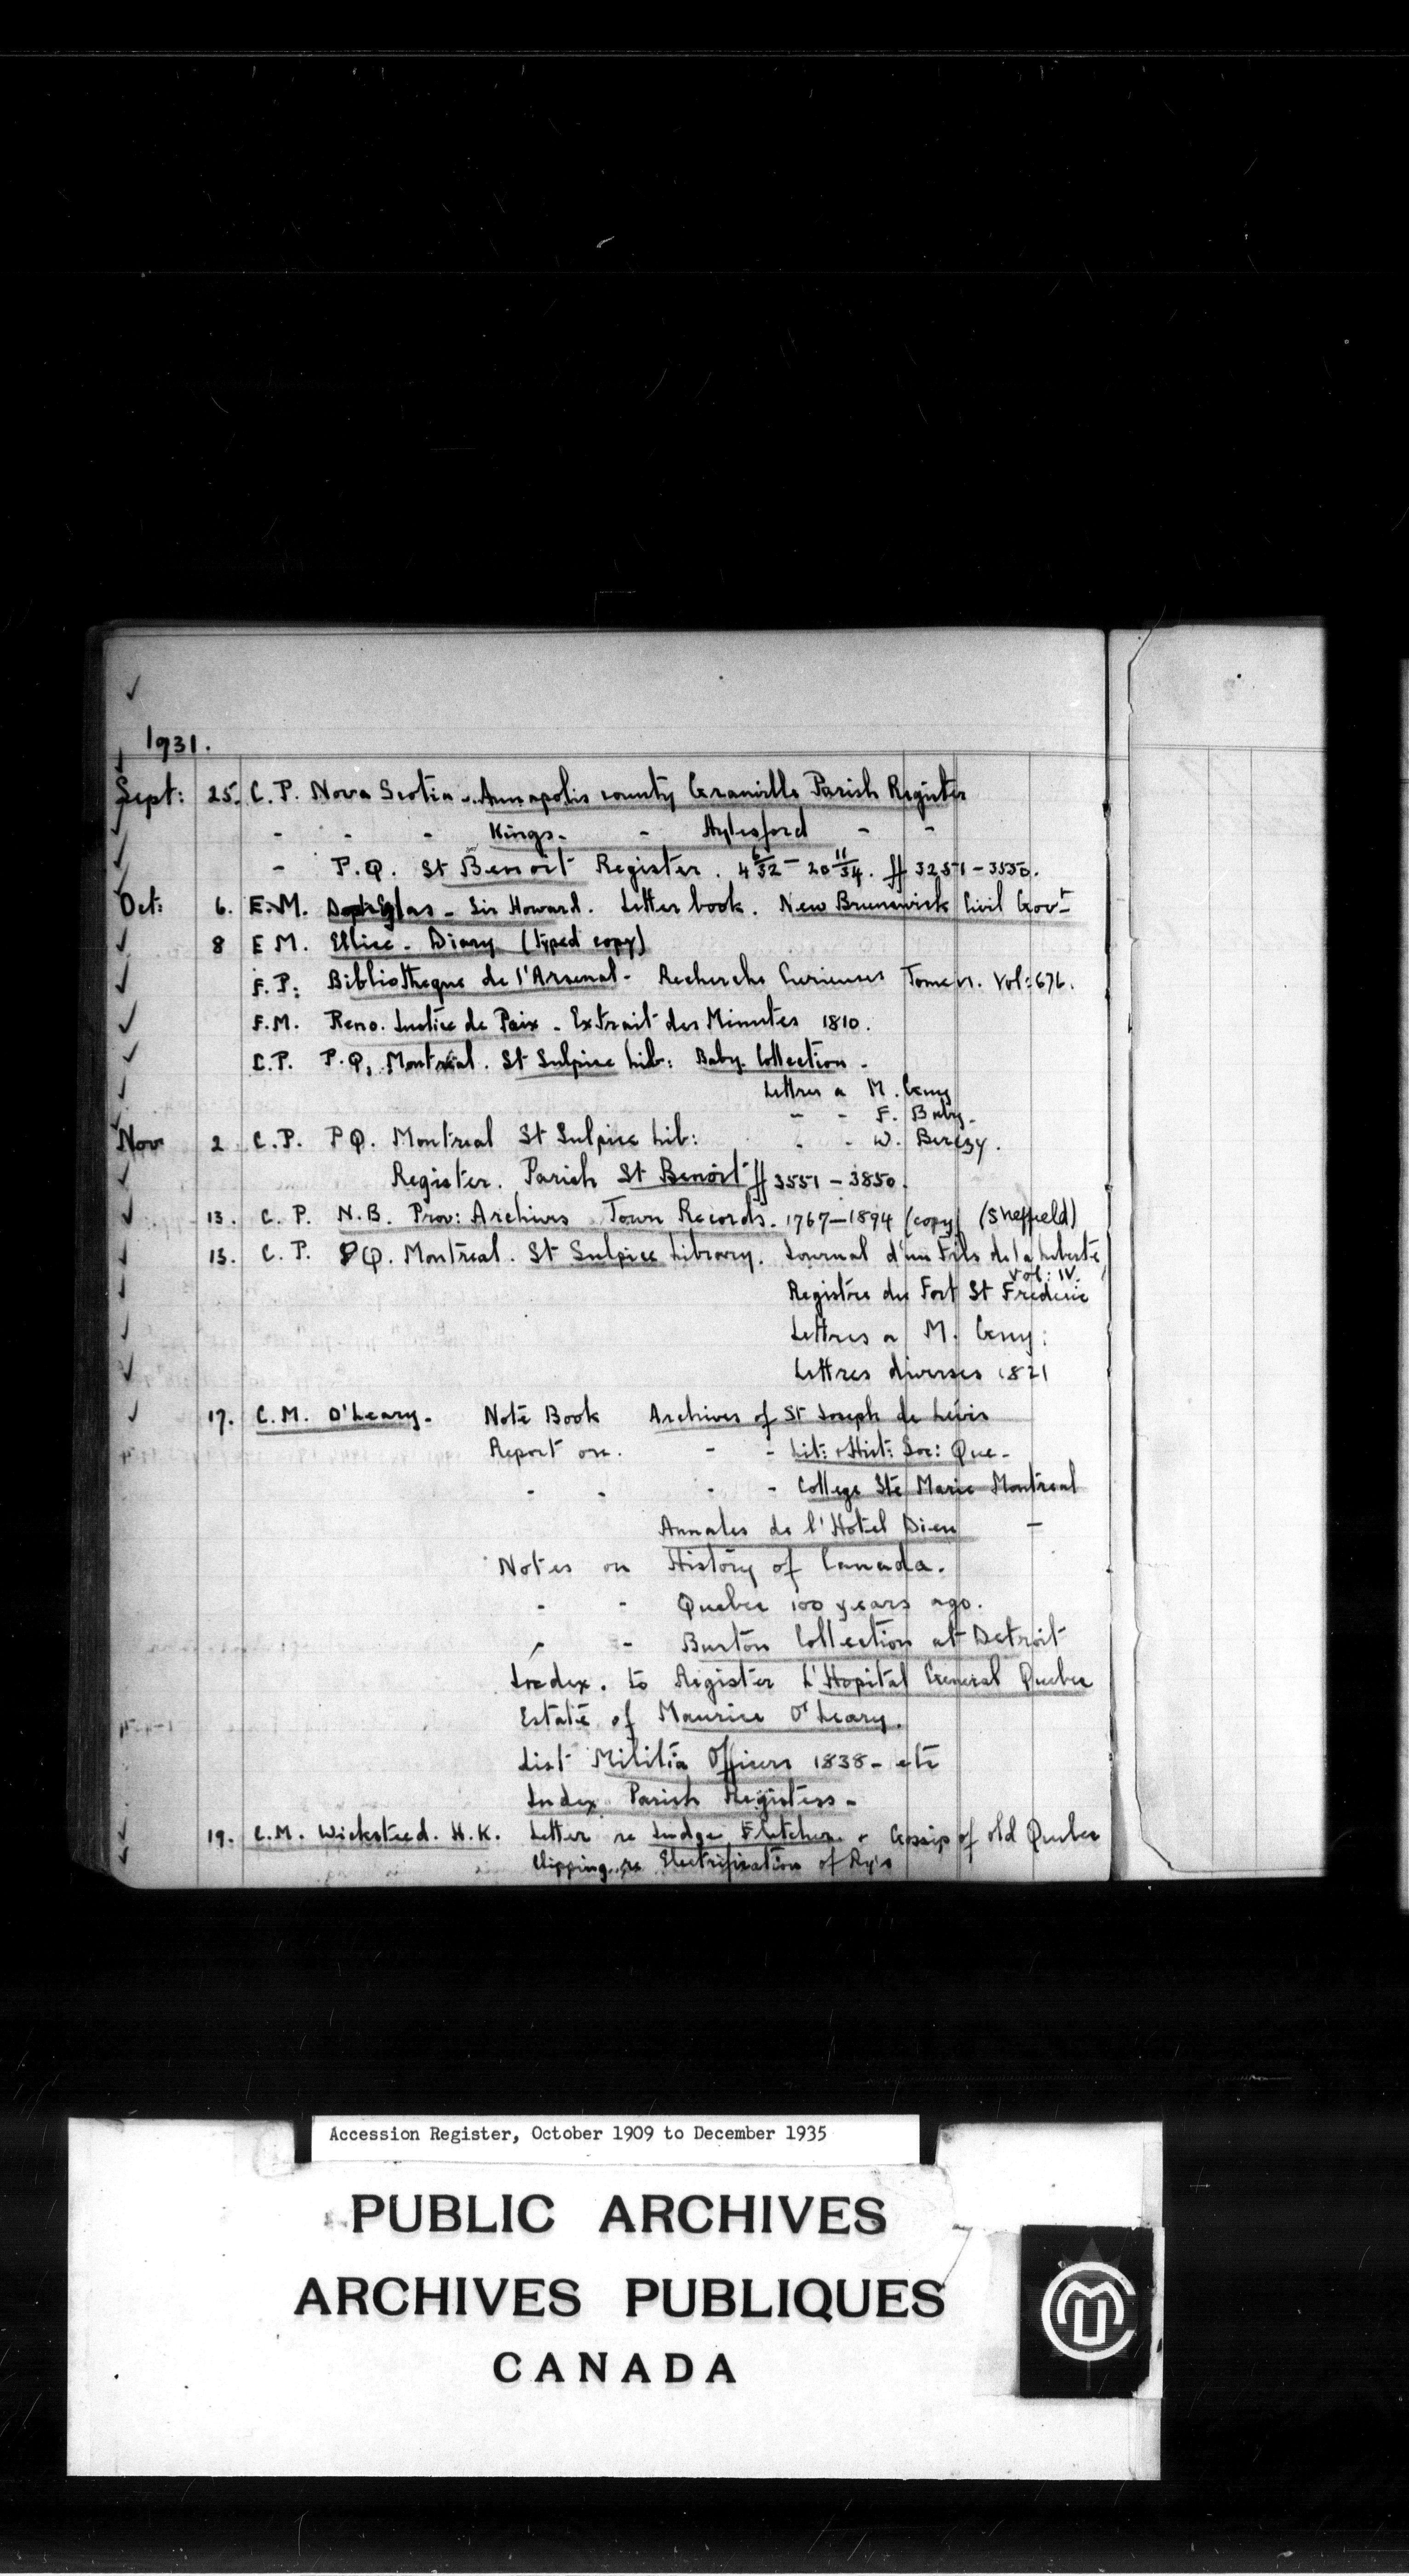 1931.
Sept: 25. C. P. Nova Scotia - Annapolis county Granville Parish Register
- - - Kings - - Aylesford - -
- P.Q. St Benoit Register. 4 6/32 - 20 11/34. ff 3251 - 3550.
Oct: 6. E.M. Douglas - Sir Howard. Letter book. New Brunswick Civil Govt
8 E M. Ellice - Diary (Typed copy)
F. P: Bibliotheque de l'Arsenal - Recherche Curieuses Tome Vol: 676.
F.M. Reno. Justice de Paix - Extrait des Minutes 1810.
C.P. P.Q, Montreal. St Sulpice Lib: Baby Collection -
Lettres a M. Geny
- - F. Baby -
Nov 2 C.P. P Q. Montreal St Sulpice Lib: - - W. Berczy.
Register. Parish St Benoit ff 3551 - 3850.
13. C. P. N.B. Prov: Archives Town Records. 1767-1894 (copy) (Sheffield)
13. C. P. P Q. Montreal. St Sulpice Library. Journal d'un Fils de la Liberté
Vol: IV.
Registre du Fort St Frederic
Lettres a M. Geny:
Lettres diverses 1821
17. C.M. O'Leary - Note Book Archives of St Joseph de Lévis
Report on. - - Lit: & Hist: Soc: Que -
- - - - College Ste Marie Montreal
Annales de l'Hotel Dieu -
Notes on History of Canada.
- - Quebec 100 years ago.
- - Burton Collection at Detroit
Index. to Register L'Hopital General Quebec
Estate of Maurice O'Leary.
List Militia Officers 1838 - etc
Index Parish Registers -
19. C.M. Wicksteed. H.K. Letter re Judge Fletcher & Gossip of old Quebec
Clipping re Electrification of Ry's
Accession Register, October 1909 to December 1935
PUBLIC ARCHIVES
ARCHIVES PUBLIQUES
CANADA